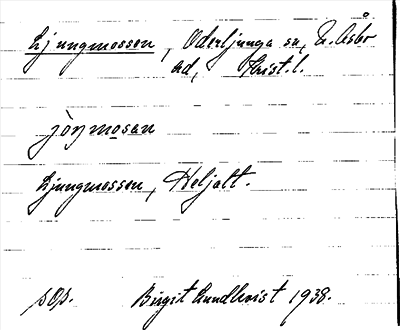 Ljungmossen, Oderljunga sn, N. Åsbo
hd, Krist. l.
jòŋmosan
Ljungmossen, Heljalt.
sOp. Birgit Lundkvist 1938.